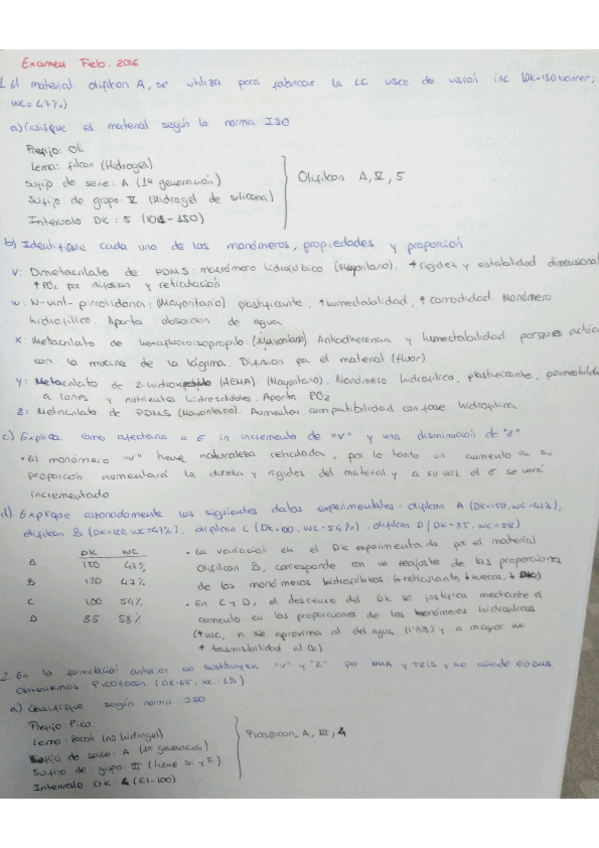 Examen Feb. 2016
1. El material olifilcon A, se utiliza para fabricar la LC usce de visión inc (DK=150 barrer;
WC=47%)
a) Clasifique el material según la norma ISO
Prefijo: Oli
Lema: filcon (Hidrogel)
Sufijo de serie: A (1ª generación)
Sufijo de grupo: V (Hidrogel de silicona)
Intervalo DK: 5 (101-150)
Olifilcon A, V, 5
b) Identifique cada uno de los monómeros, propiedades y proporción
V: Dimetacrilato de PDMS: macrómero hidrofóbico (Mayoritario). ↑rigidez y estabilidad dimensional
↑PO2 por difusión y reticulación
W: N-vinil-pirrolidona: (Mayoritario). plastificante, ↑humectabilidad, ↑comodidad. Monómero
hidrofílico. Aporta absorción de agua
X: Metacrilato de hexafluoroisopropilo: (Mayoritario). Antiadherencia y humectabilidad porque actúa
con la mucina de la lágrima. Difusión por el material (fluor)
Y: Metacrilato de 2-hidroxietilo (HEMA) (Mayoritario). Monómero hidrofílico, plastificante, permeabilidad
a iones y nutrientes hidrosolubles. Aporta PO2
Z: Metacrilato de PDMS (Mayoritario). Aumentar compatibilidad con fase hidrofílica
c) Explica como afectaría a E un incremento de "V" y una disminución de "Z"
• El monómero "V" tiene naturaleza reticulada, por lo tanto un aumento en su
proporción aumentará la dureza y rigidez del material y a su vez el E se verá
incrementado
d) Explique razonadamente los siguientes datos experimentales: olifilcon A (DK=150, WC=47%),
olifilcon B (DK=120, WC=47%), olifilcon C (DK=100, WC=54%), olifilcon D (DK=85, WC=58)
DK WC
A 150 47%
B 120 47%
C 100 54%
D 85 58%
• La variación en el DK experimentada por el material
olifilcon B, corresponde con un reajuste de las proporciones
de los monómeros hidrofóbicos
• En C y D, el descenso del DK se justifica mediante el
aumento en las proporciones de los monómeros hidrofílicos
(↑WC, n se aproxima al del agua (1'33) y a mayor WC
↑ trasmisibilidad al O2)
2. En la formulación anterior se sustituyen "V" y "Z" por MMA y TRIS y se añade EGDMA.
Obtenemos Picofocon (DK=65, WC<1%)
a) Clasifique según norma ISO
Prefijo: Pico
Lema: focon (no hidrogel)
Sufijo de serie: A (1ª generación)
Sufijo de grupo: III (tiene Si y F)
Intervalo DK: 4 (61-100)
Picofocon, A, III, 4